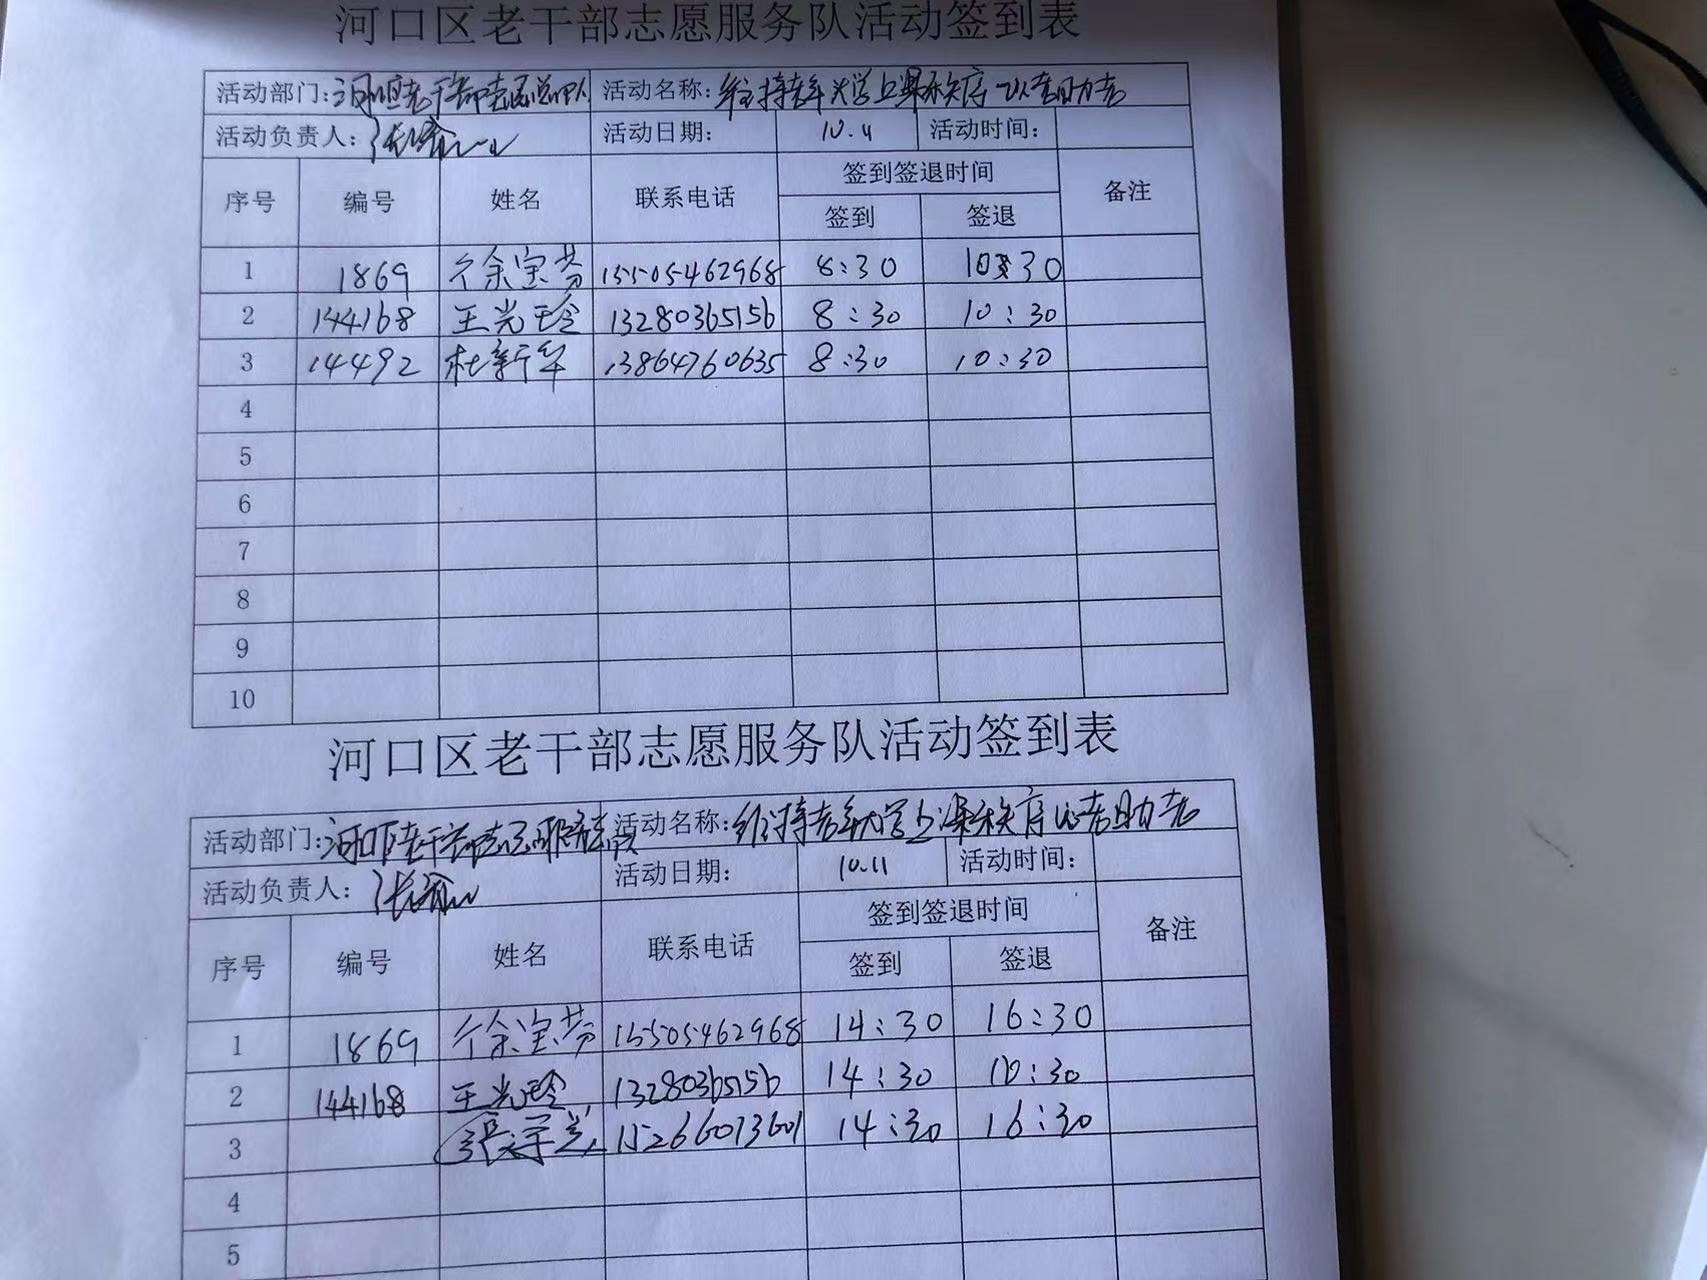 河口区老干部志愿服务队活动签到表
活动部门: 河口区老干部志愿总队 活动名称: 维持老年大学上课秩序 以老助老
活动负责人: 活动日期: 10.11 活动时间:
序号 编号 姓名 联系电话 签到签退时间 备注
签到 签退
1 1869 徐宝芬 15505462968 8:30 10:30
2 144168 王光玲 13280365156 8:30 10:30
3 14492 杜新华 13864760635 8:30 10:30
4
5
6
7
8
9
10
河口区老干部志愿服务队活动签到表
活动部门: 河口区老干部志愿服务 活动名称: 维持老年大学上课秩序 以老助老
活动负责人: 活动日期: 10.11 活动时间:
序号 编号 姓名 联系电话 签到签退时间 备注
签到 签退
1 1869 徐宝芬 15505462968 14:30 16:30
2 144168 王光玲 13280365156 14:30 10:30
3 15266013601 14:30 16:30
4
5